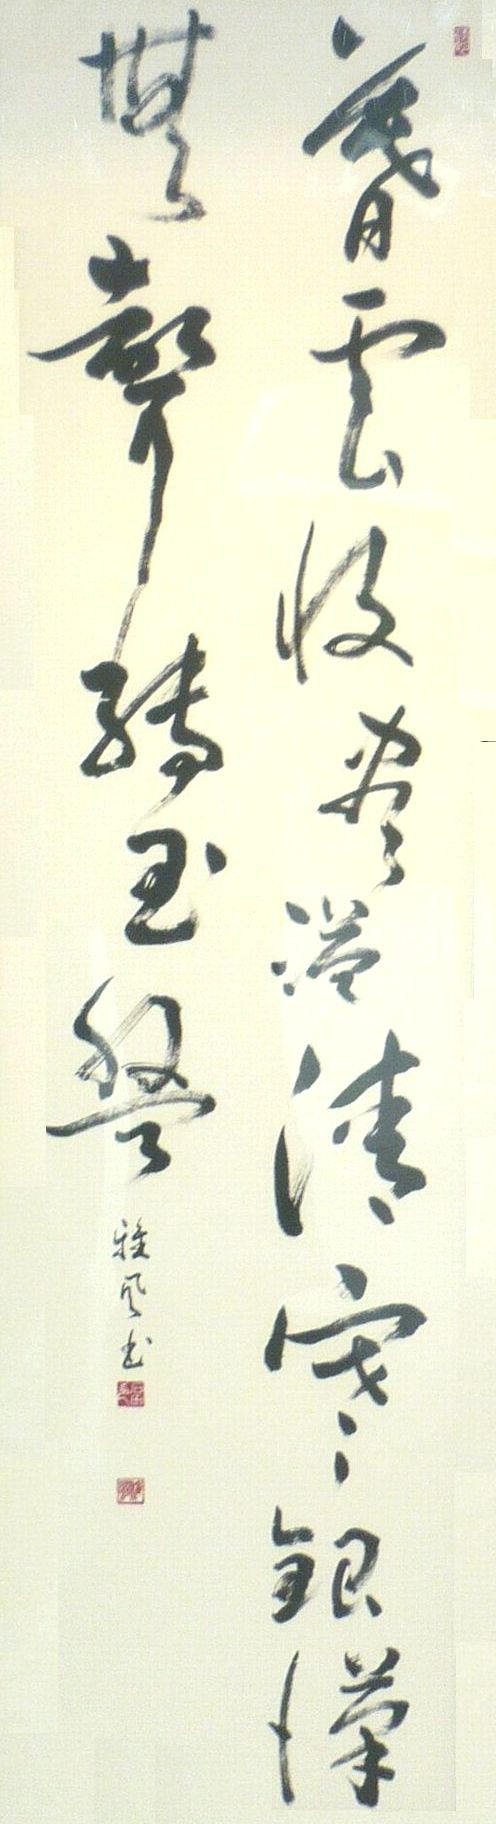 暮雲收盡溢清寒銀漢
無聲轉玉盤
雅風書